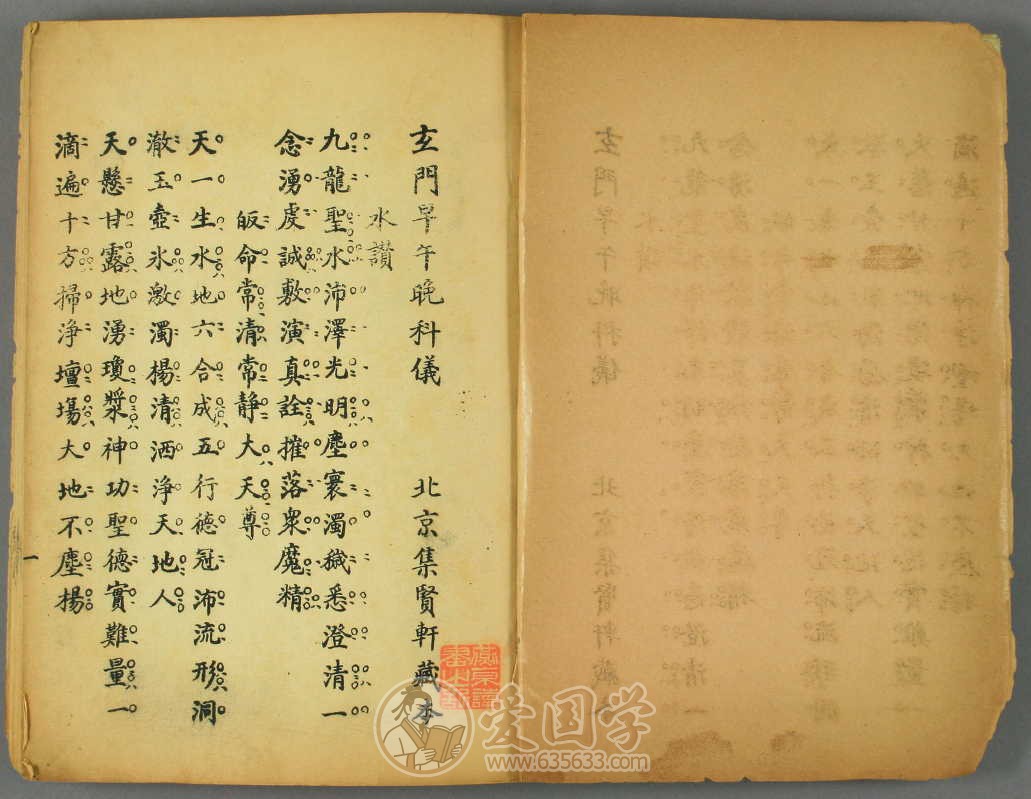 玄門早午晚科儀　北京集賢軒藏本
水讚
九龍聖水沛澤光明塵寰濁穢悉澄清一
念湧虔誠敷演真詮摧落衆魔精
皈命常清常靜大天尊
天一生水地六合成五行德冠沛流形洞
澈玉壺氷激濁揚清洒淨天地人
天懸甘露地湧瓊漿神功聖德實難量一
滴遍十方掃淨壇塲大地不塵揚
一
爱国学
www.635633.com